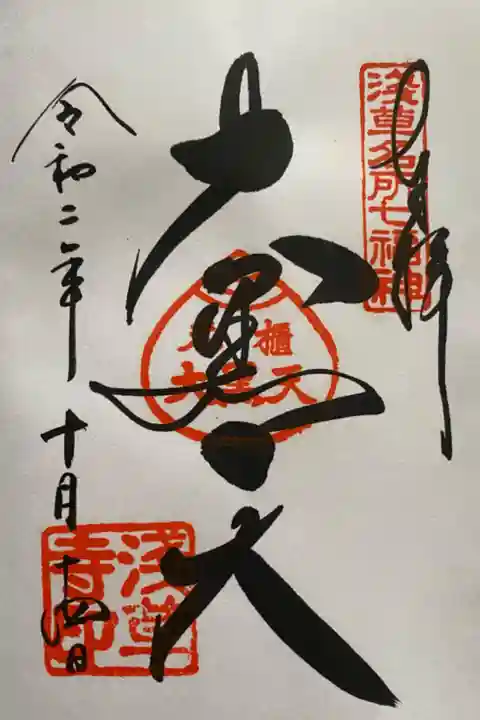 奉拝
浅草名所七福神
大黒天
米櫃
大黒天
令和二年十月十四日
浅草寺印